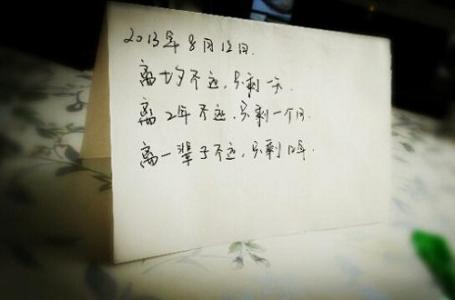 2013年8月12日.
离七夕不远，只剩一天.
离2年不远，只剩一个月.
离一辈子不远，只剩12年.